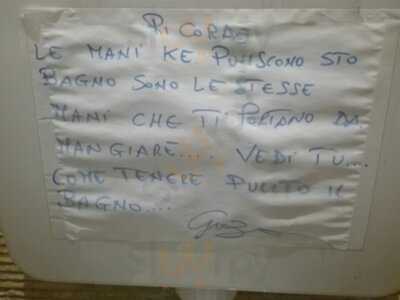 RICORDE
LE MANI KE PULISCONO STO
BAGNO SONO LE STESSE
MANI CHE TI PORTANO DA
MANGIARE.... VEDI TU....
COME TENERE PULITO IL
BAGNO....